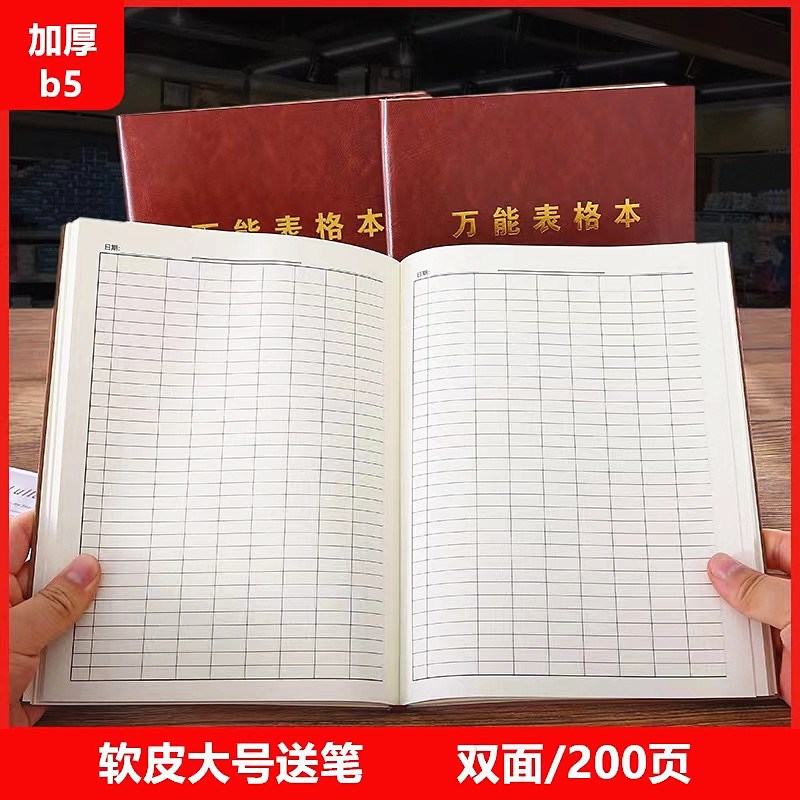 加厚
b5
万能表格本
万能表格本
日期:
日期:
软皮大号送笔
双面/200页